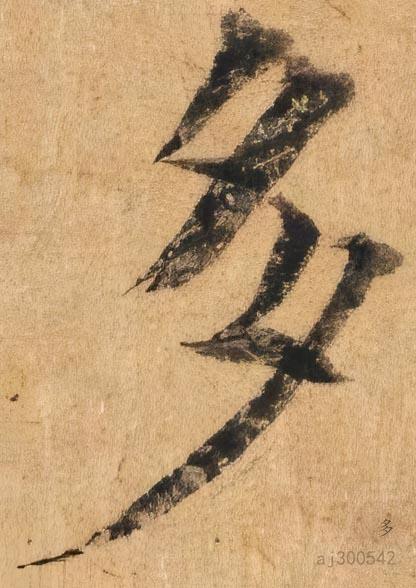 多
多
aj300542